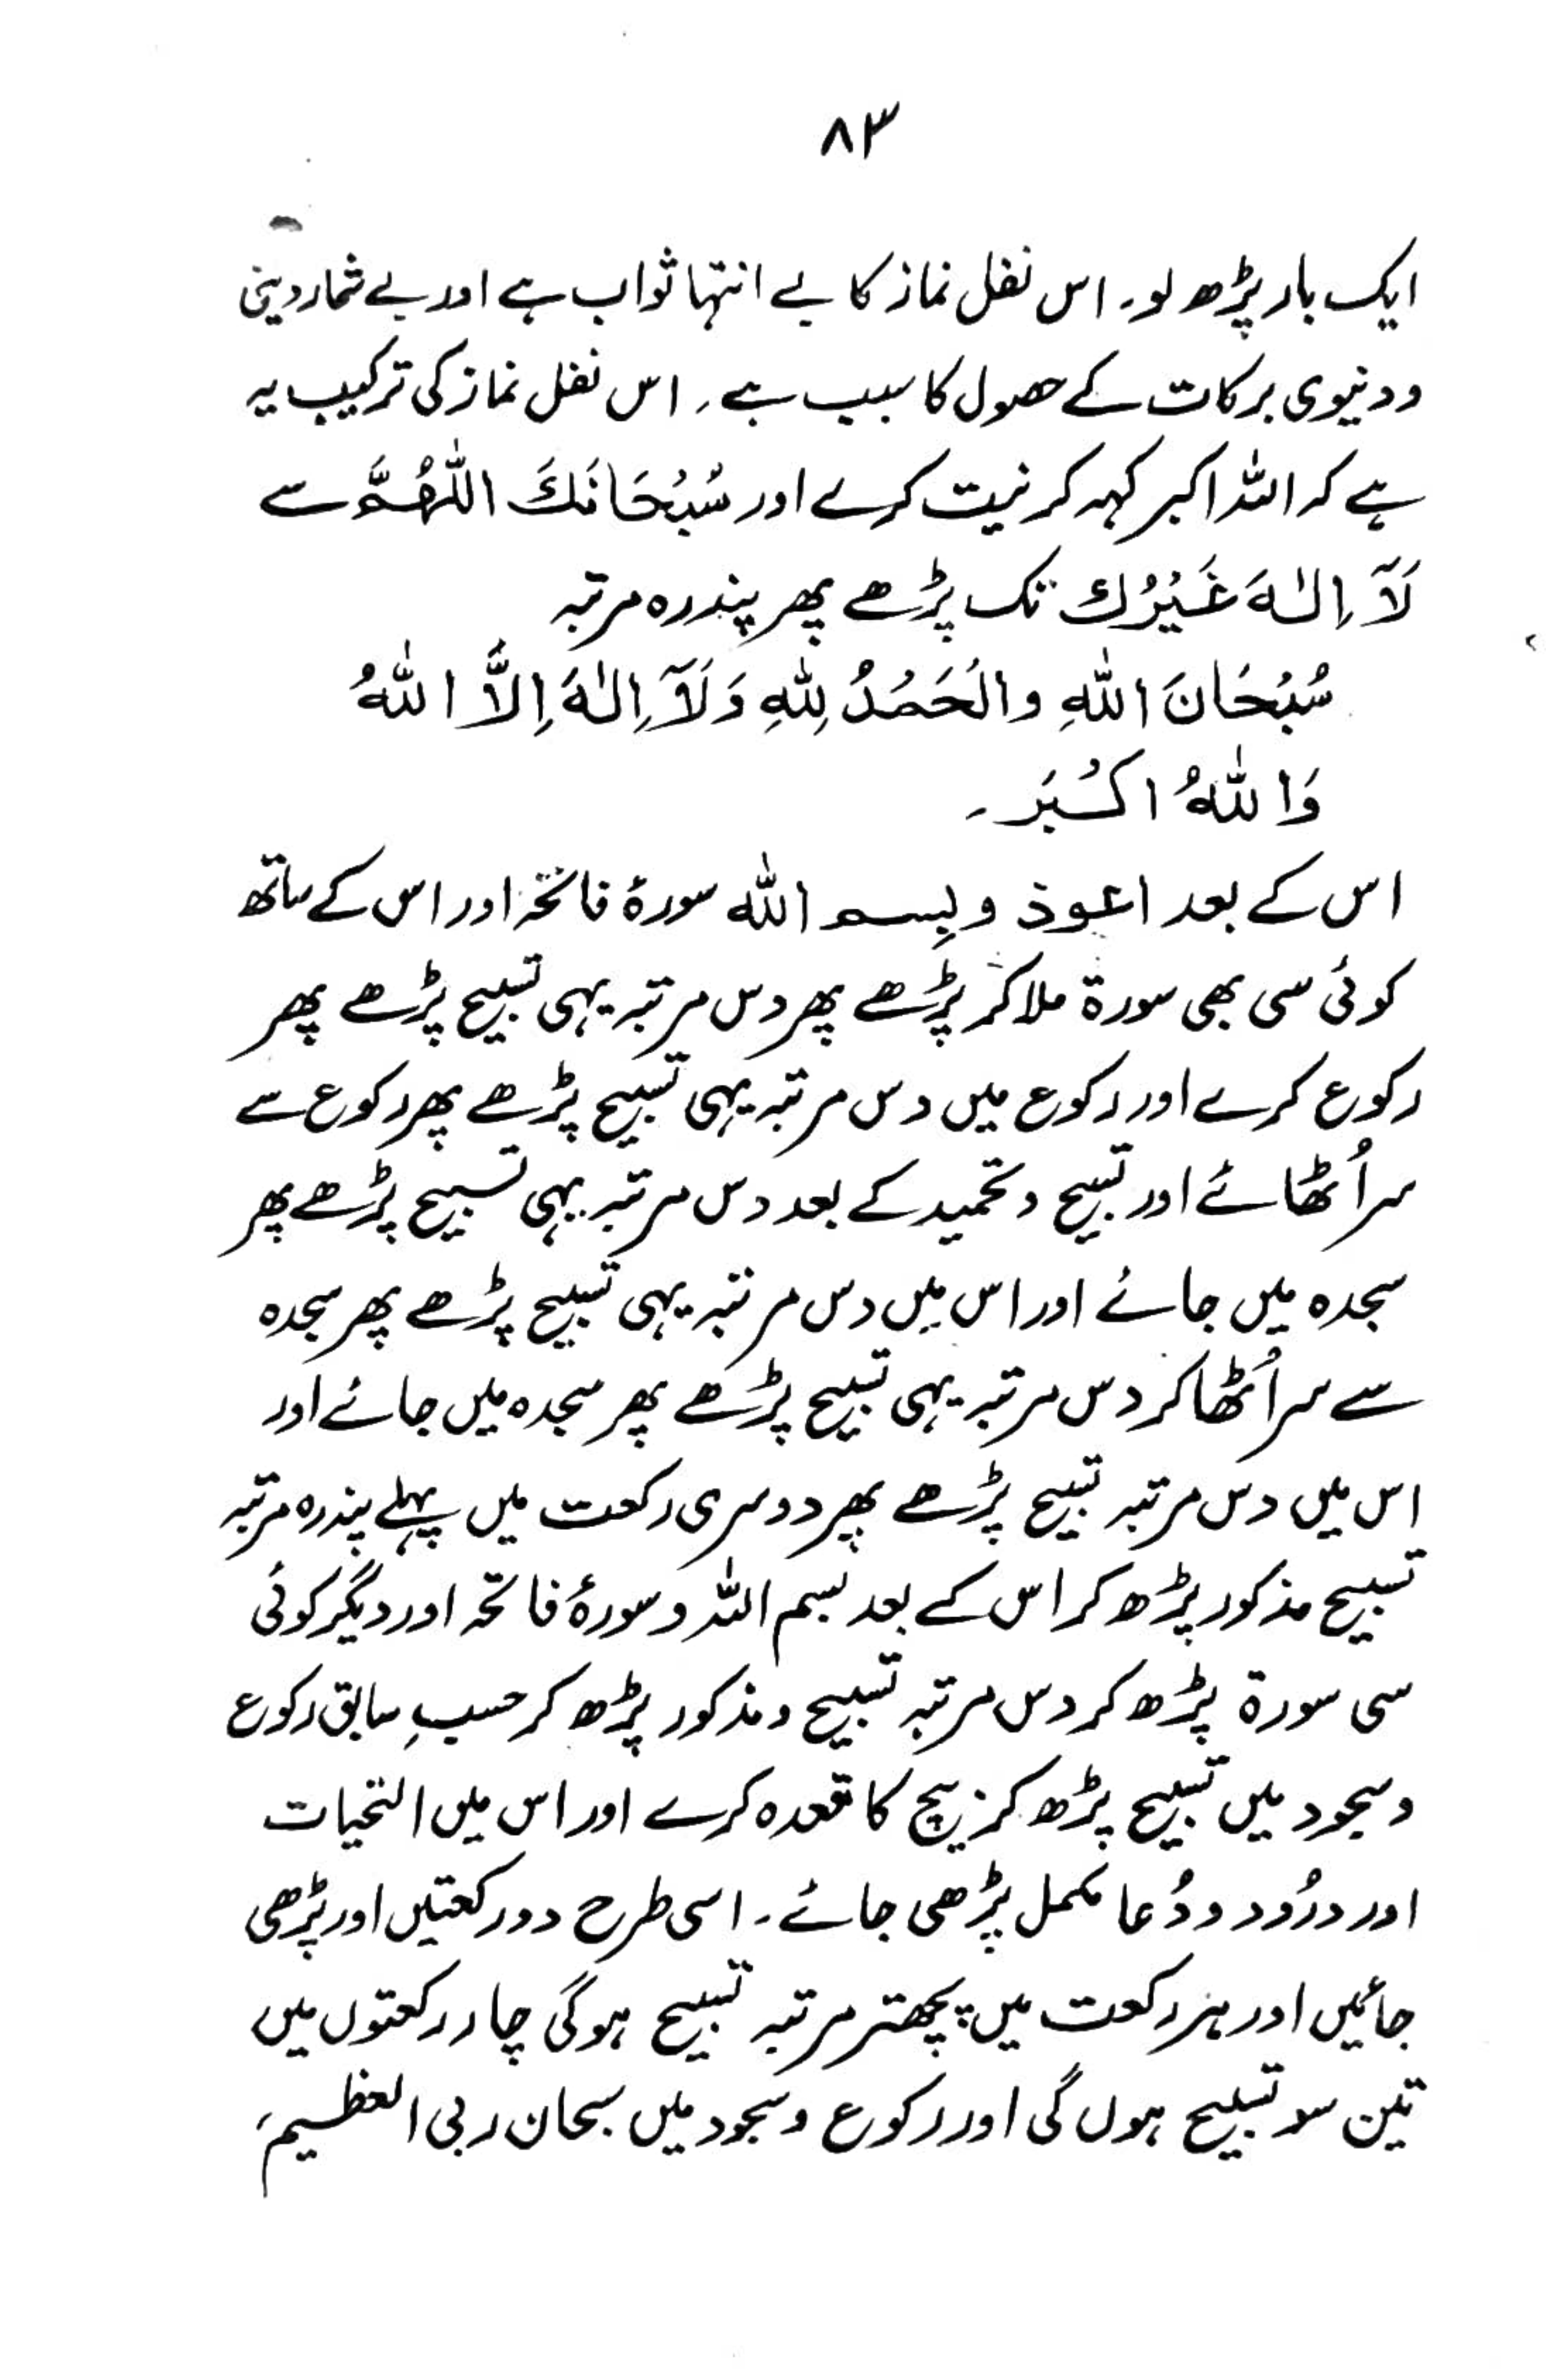 ۸۳
ایک بار پڑھ لو۔ اس نفل نماز کا بے انتہا ثواب ہے اور بے شمار دینی
و دنیوی برکات کے حصول کا سبب ہے۔ اس نفل نماز کی ترکیب یہ
ہے کہ اللہ اکبر کہہ کر نیت کرے اور سُبْحَانَكَ اللّٰهُمَّ سے
لَآ اِلٰهَ غَيْرُك تک پڑھے پھر پندرہ مرتبہ
سُبْحَانَ اللّٰهِ والْحَمْدُ لِلّٰهِ وَلَآ اِلٰهَ اِلَّا اللّٰهُ
وَاللّٰهُ اكْبَر۔
اس کے بعد اعوذ و بِسم اللّٰه سورۂ فاتحہ اور اس کے ساتھ
کوئی سی بھی سورۃ ملا کر پڑھے پھر دس مرتبہ یہی تسبیح پڑھے پھر
رکوع کرے اور رکوع میں دس مرتبہ یہی تسبیح پڑھے پھر رکوع سے
سر اُٹھائے اور تسبیح و تحمید کے بعد دس مرتبہ یہی تسبیح پڑھے پھر
سجدہ میں جائے اور اس میں دس مرتبہ یہی تسبیح پڑھے پھر سجدہ
سے سر اُٹھا کر دس مرتبہ یہی تسبیح پڑھے پھر سجدہ میں جائے اور
اس میں دس مرتبہ تسبیح پڑھے پھر دوسری رکعت میں پہلے پندرہ مرتبہ
تسبیح مذکور پڑھ کر اس کے بعد بسم اللہ و سورۂ فاتحہ اور دیگر کوئی
سی سورۃ پڑھ کر دس مرتبہ تسبیح و مذکور پڑھ کر حسبِ سابق رکوع
و سجود میں تسبیح پڑھ کر بیچ کا قعدہ کرے اور اس میں التحیات
اور درُود و دُعا مکمل پڑھی جائے۔ اسی طرح دو رکعتیں اور پڑھی
جائیں اور ہر رکعت میں پچھتر مرتبہ تسبیح ہوگی چار رکعتوں میں
تین سو تسبیح ہوں گی اور رکوع و سجود میں سبحان ربی العظیم،